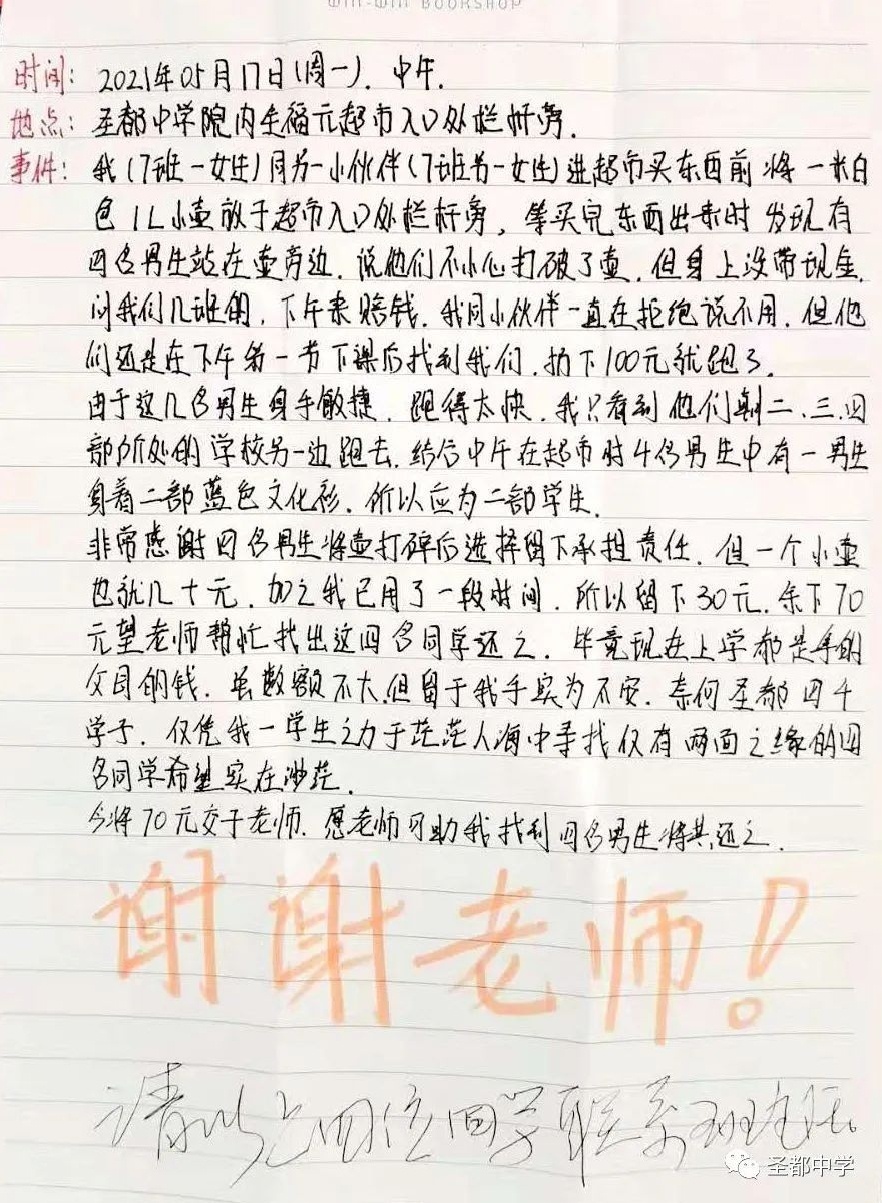 WIN-WIN BOOKSHOP
时间：2021年05月17日(周一)．中午．
地点：圣都中学院内全福元超市入口处栏杆旁．
事件：我(7班一女生)同另一小伙伴(7班另一女生)进超市买东西前将一米白
色1L小壶放于超市入口处栏杆旁，等买完东西出来时发现有
四名男生站在壶旁边．说他们不小心打破了壶．但身上没带现金．
问我们几班的，下午来赔钱．我同小伙伴一直在拒绝说不用．但他
们还是在下午第一节下课后找到我们．扔下100元就跑了．
由于这几名男生身手敏捷．跑得太快．我只看到他们朝二、三、四
部所处的学校另一边跑去．结合中午在超市时4名男生中有一男生
身着二部蓝色文化衫．所以应为二部学生．
非常感谢四名男生将壶打碎后选择留下承担责任．但一个小壶
也就几十元．加之我已用了一段时间．所以留下30元．余下70
元望老师帮忙找出这四名同学还之．毕竟现在上学都是拿的
父母的钱．虽数额不大．但留于我手实为不安．奈何圣都四千
学子．仅凭我一学生之力于茫茫人海中寻找仅有两面之缘的四
名同学希望实在渺茫．
今将70元交于老师．愿老师可助我找到四名男生将其还之．
谢谢老师！
请以上四位同学联系班主任。
圣都中学